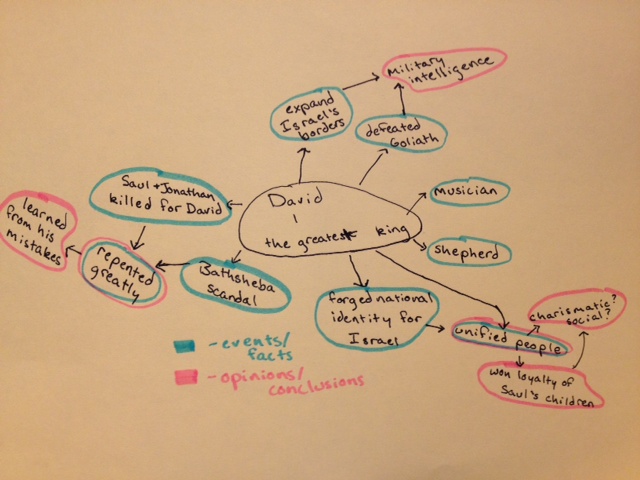 Military
intelligence
expand
Israel's
borders
defeated
Goliath
Saul + Jonathan
killed for David
David
-
the greatest king
musician
shepherd
learned
from his
mistakes
repented
greatly
Bathsheba
scandal
forged national
identity for
Israel
unified people
charismatic?
social?
won loyalty of
Saul's children
- events/
facts
- opinions/
conclusions